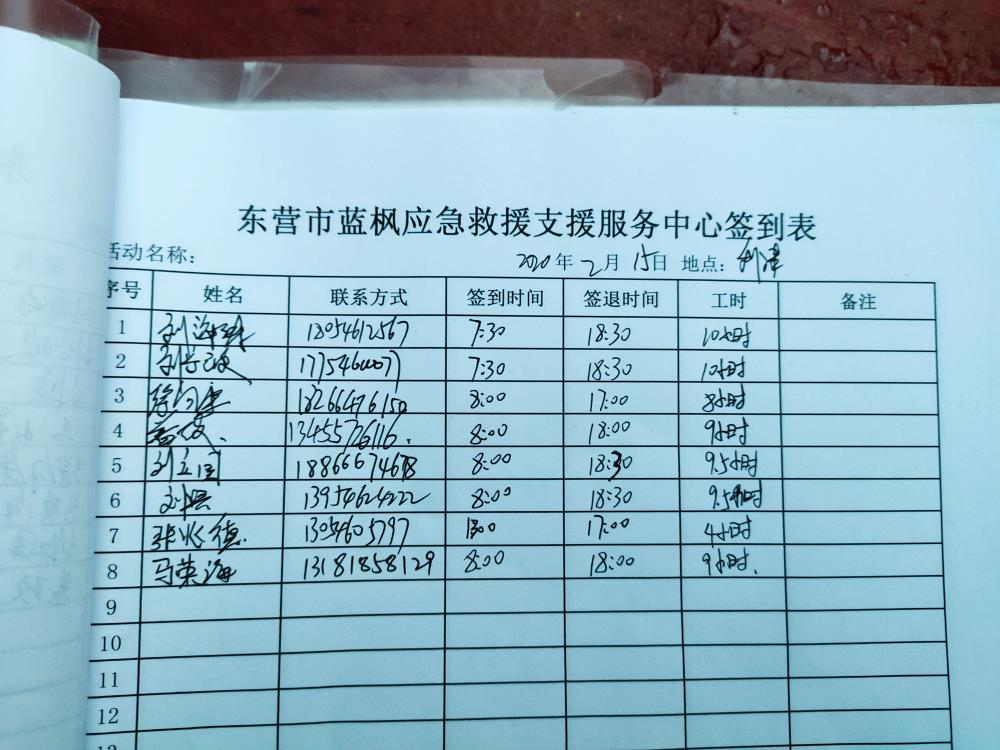 东营市蓝枫应急救援支援服务中心签到表
活动名称: 2020年2月15日 地点: 利津
序号 姓名 联系方式 签到时间 签退时间 工时 备注
1 刘海 18054612567 7:30 18:30 10小时
2 7:30 18:30 10小时
3 18266476150 8:00 17:00 8小时
4 13455726116. 8:00 18:00 9小时
5 刘立国 18866674678 8:00 18:30 9.5小时
6 刘洪 13954624222 8:00 18:30 9.5小时
7 张兆德. 17:00 4小时
8 马荣海 13181858129 8:00 18:00 9小时.
9
10
11
12